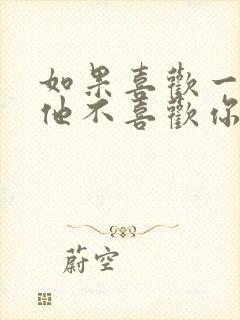 如果喜歡一
他不喜歡你
蔚空